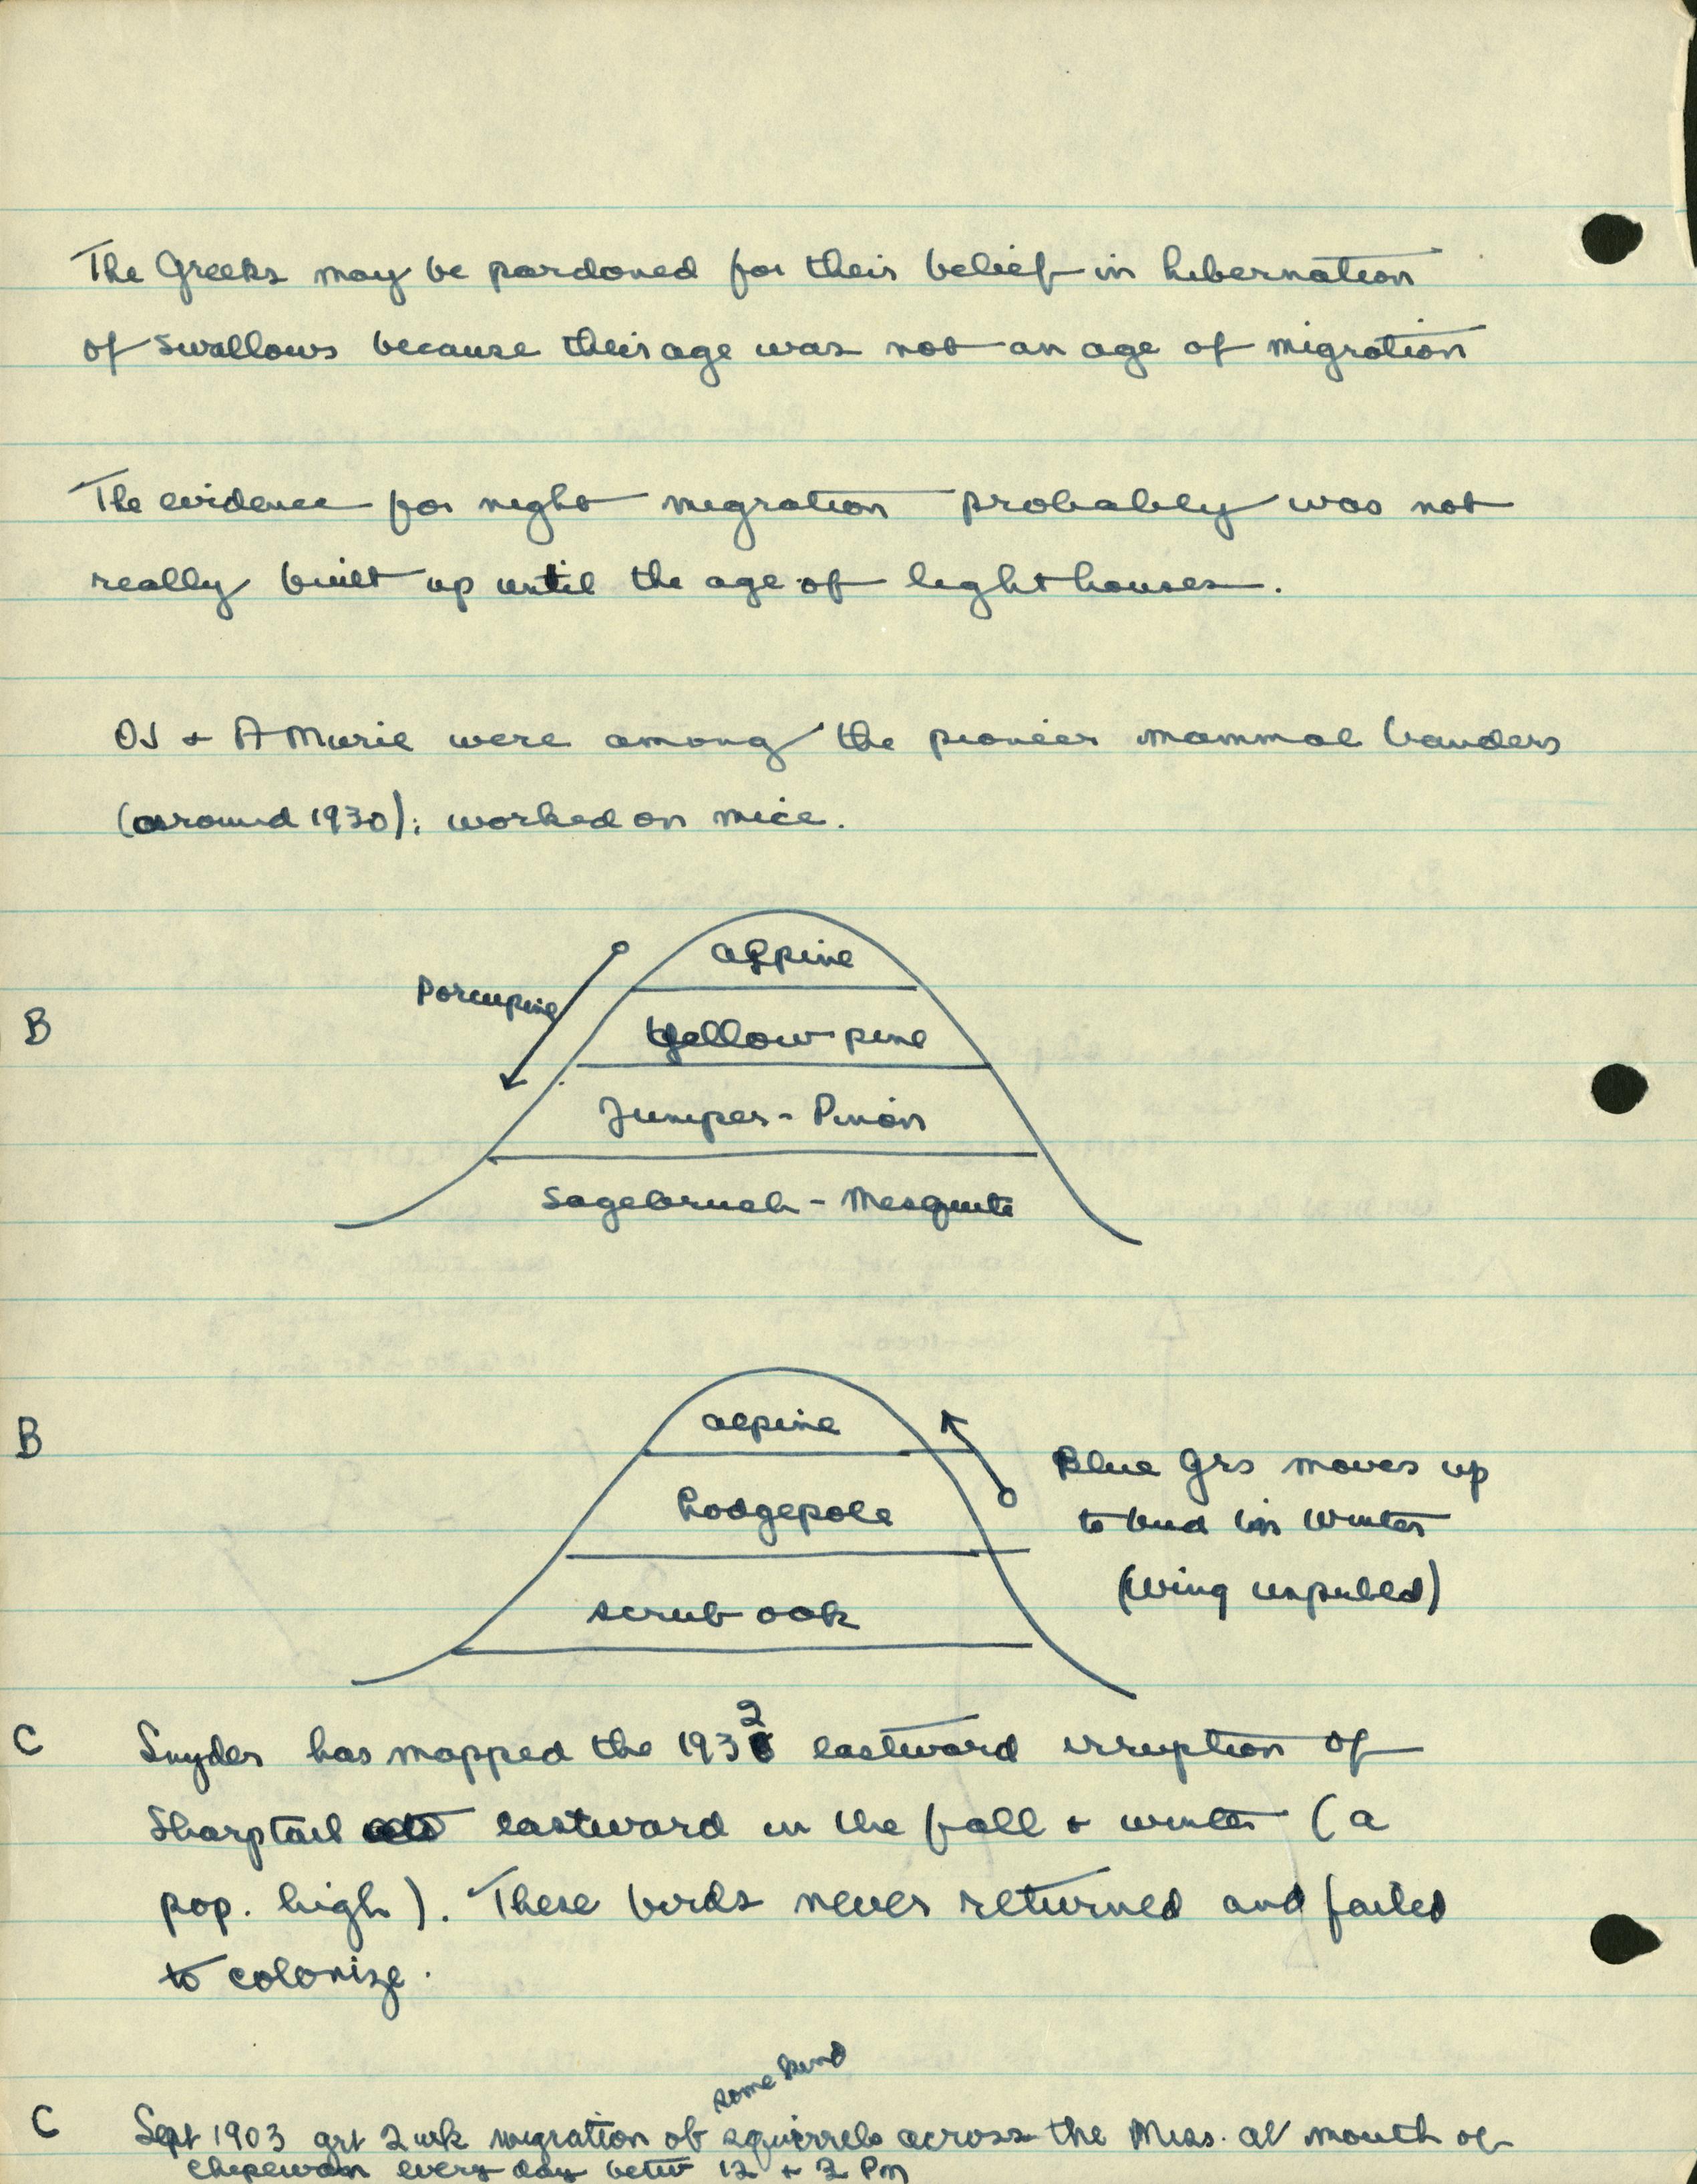 The Greeks may be pardoned for their belief in hibernation
of swallows because their age was not an age of migration
The evidence for night migration probably was not
really built up until the age of lighthouses.
OJ + A Murie were among the pioneer mammal banders
(around 1930); worked on mice.
B
Porcupine
alpine
Yellow pine
Juniper - Pinon
Sagebrush - Mesquite
B
alpine
Lodgepole
scrub oak
Blue Grs moves up
to bud in Winter
(Wing unpubled)
C Snyder has mapped the 1932 eastward irruption of
Sharptail eastward in the fall + winter (a
pop. high). These birds never returned and failed
to colonize.
some kind
C Sept 1903 grt 2 wk migration of squirrels across the Miss. at mouth of
Chipewan every day betw 12 + 2 PM